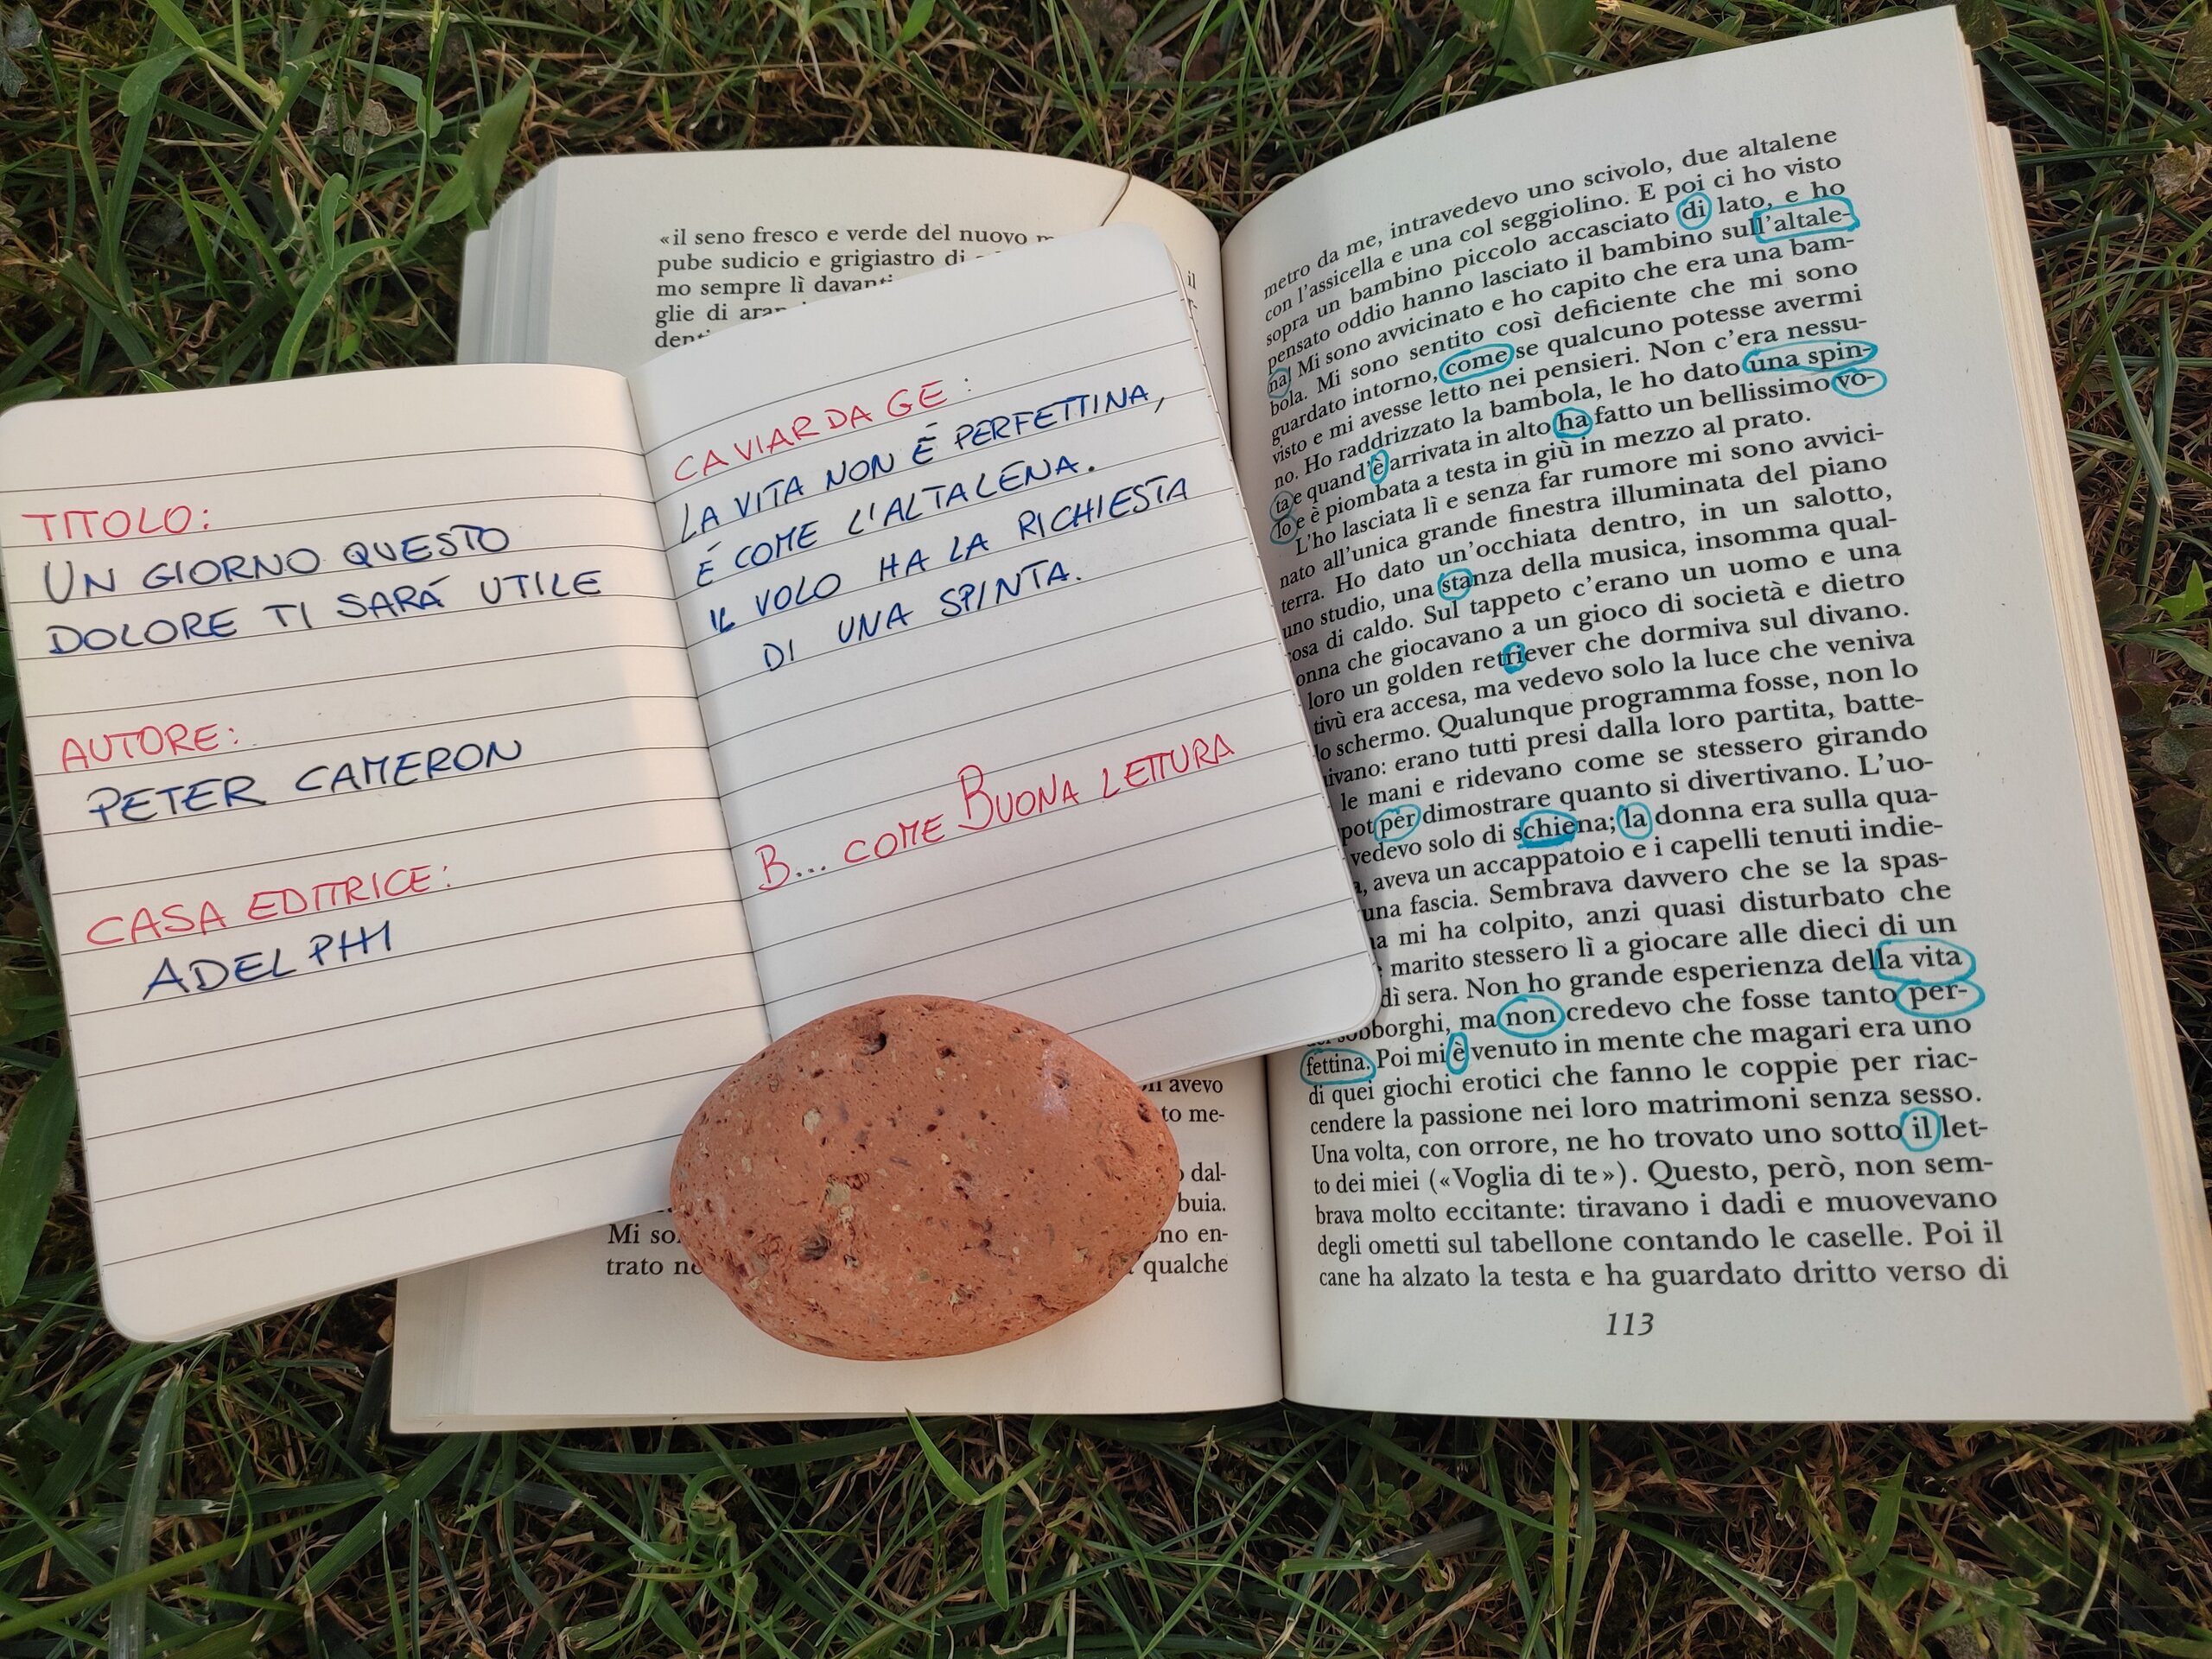 TITOLO:
UN GIORNO QUESTO
DOLORE TI SARÁ UTILE
AUTORE:
PETER CAMERON
CASA EDITRICE:
ADELPHI
CAVIARDAGE:
LA VITA NON É PERFETTINA,
É COME L'ALTALENA.
IL VOLO HA LA RICHIESTA
DI UNA SPINTA.
B... COME BUONA LETTURA
«il seno fresco e verde del nuovo
pube sudicio e grigiastro di
mo sempre lì davanti
glie di
avevo
to me-
dal-
buia.
Mi
no en-
trato
qualche
metro da me, intravedevo uno scivolo, due altalene
con l'assicella e una col seggiolino. E poi ci ho visto
sopra un bambino piccolo accasciato di lato, e ho
pensato oddio hanno lasciato il bambino sull'altale-
na! Mi sono avvicinato e ho capito che era una bam-
bola. Mi sono sentito così deficiente che mi sono
guardato intorno, come se qualcuno potesse avermi
visto e mi avesse letto nei pensieri. Non c'era nessu-
no. Ho raddrizzato la bambola, le ho dato una spin-
ta e quand'è arrivata in alto ha fatto un bellissimo vo-
lo e è piombata a testa in giù in mezzo al prato.
L'ho lasciata lì e senza far rumore mi sono avvici-
nato all'unica grande finestra illuminata del piano
terra. Ho dato un'occhiata dentro, in un salotto,
uno studio, una stanza della musica, insomma qual-
cosa di caldo. Sul tappeto c'erano un uomo e una
onna che giocavano a un gioco di società e dietro
loro un golden retriever che dormiva sul divano.
tivù era accesa, ma vedevo solo la luce che veniva
lo schermo. Qualunque programma fosse, non lo
uivano: erano tutti presi dalla loro partita, batte-
le mani e ridevano come se stessero girando
pot per dimostrare quanto si divertivano. L'uo-
vedevo solo di schiena; la donna era sulla qua-
, aveva un accappatoio e i capelli tenuti indie-
una fascia. Sembrava davvero che se la spas-
mi ha colpito, anzi quasi disturbato che
marito stessero lì a giocare alle dieci di un
dì sera. Non ho grande esperienza della vita
sobborghi, ma non credevo che fosse tanto per-
fettina. Poi mi è venuto in mente che magari era uno
di quei giochi erotici che fanno le coppie per riac-
cendere la passione nei loro matrimoni senza sesso.
Una volta, con orrore, ne ho trovato uno sotto il let-
to dei miei («Voglia di te»). Questo, però, non sem-
brava molto eccitante: tiravano i dadi e muovevano
degli ometti sul tabellone contando le caselle. Poi il
cane ha alzato la testa e ha guardato dritto verso di
113